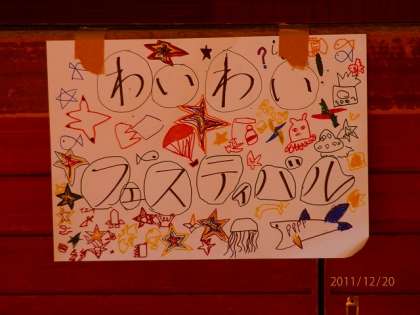 わいわい
フェスティバル
2011/12/20